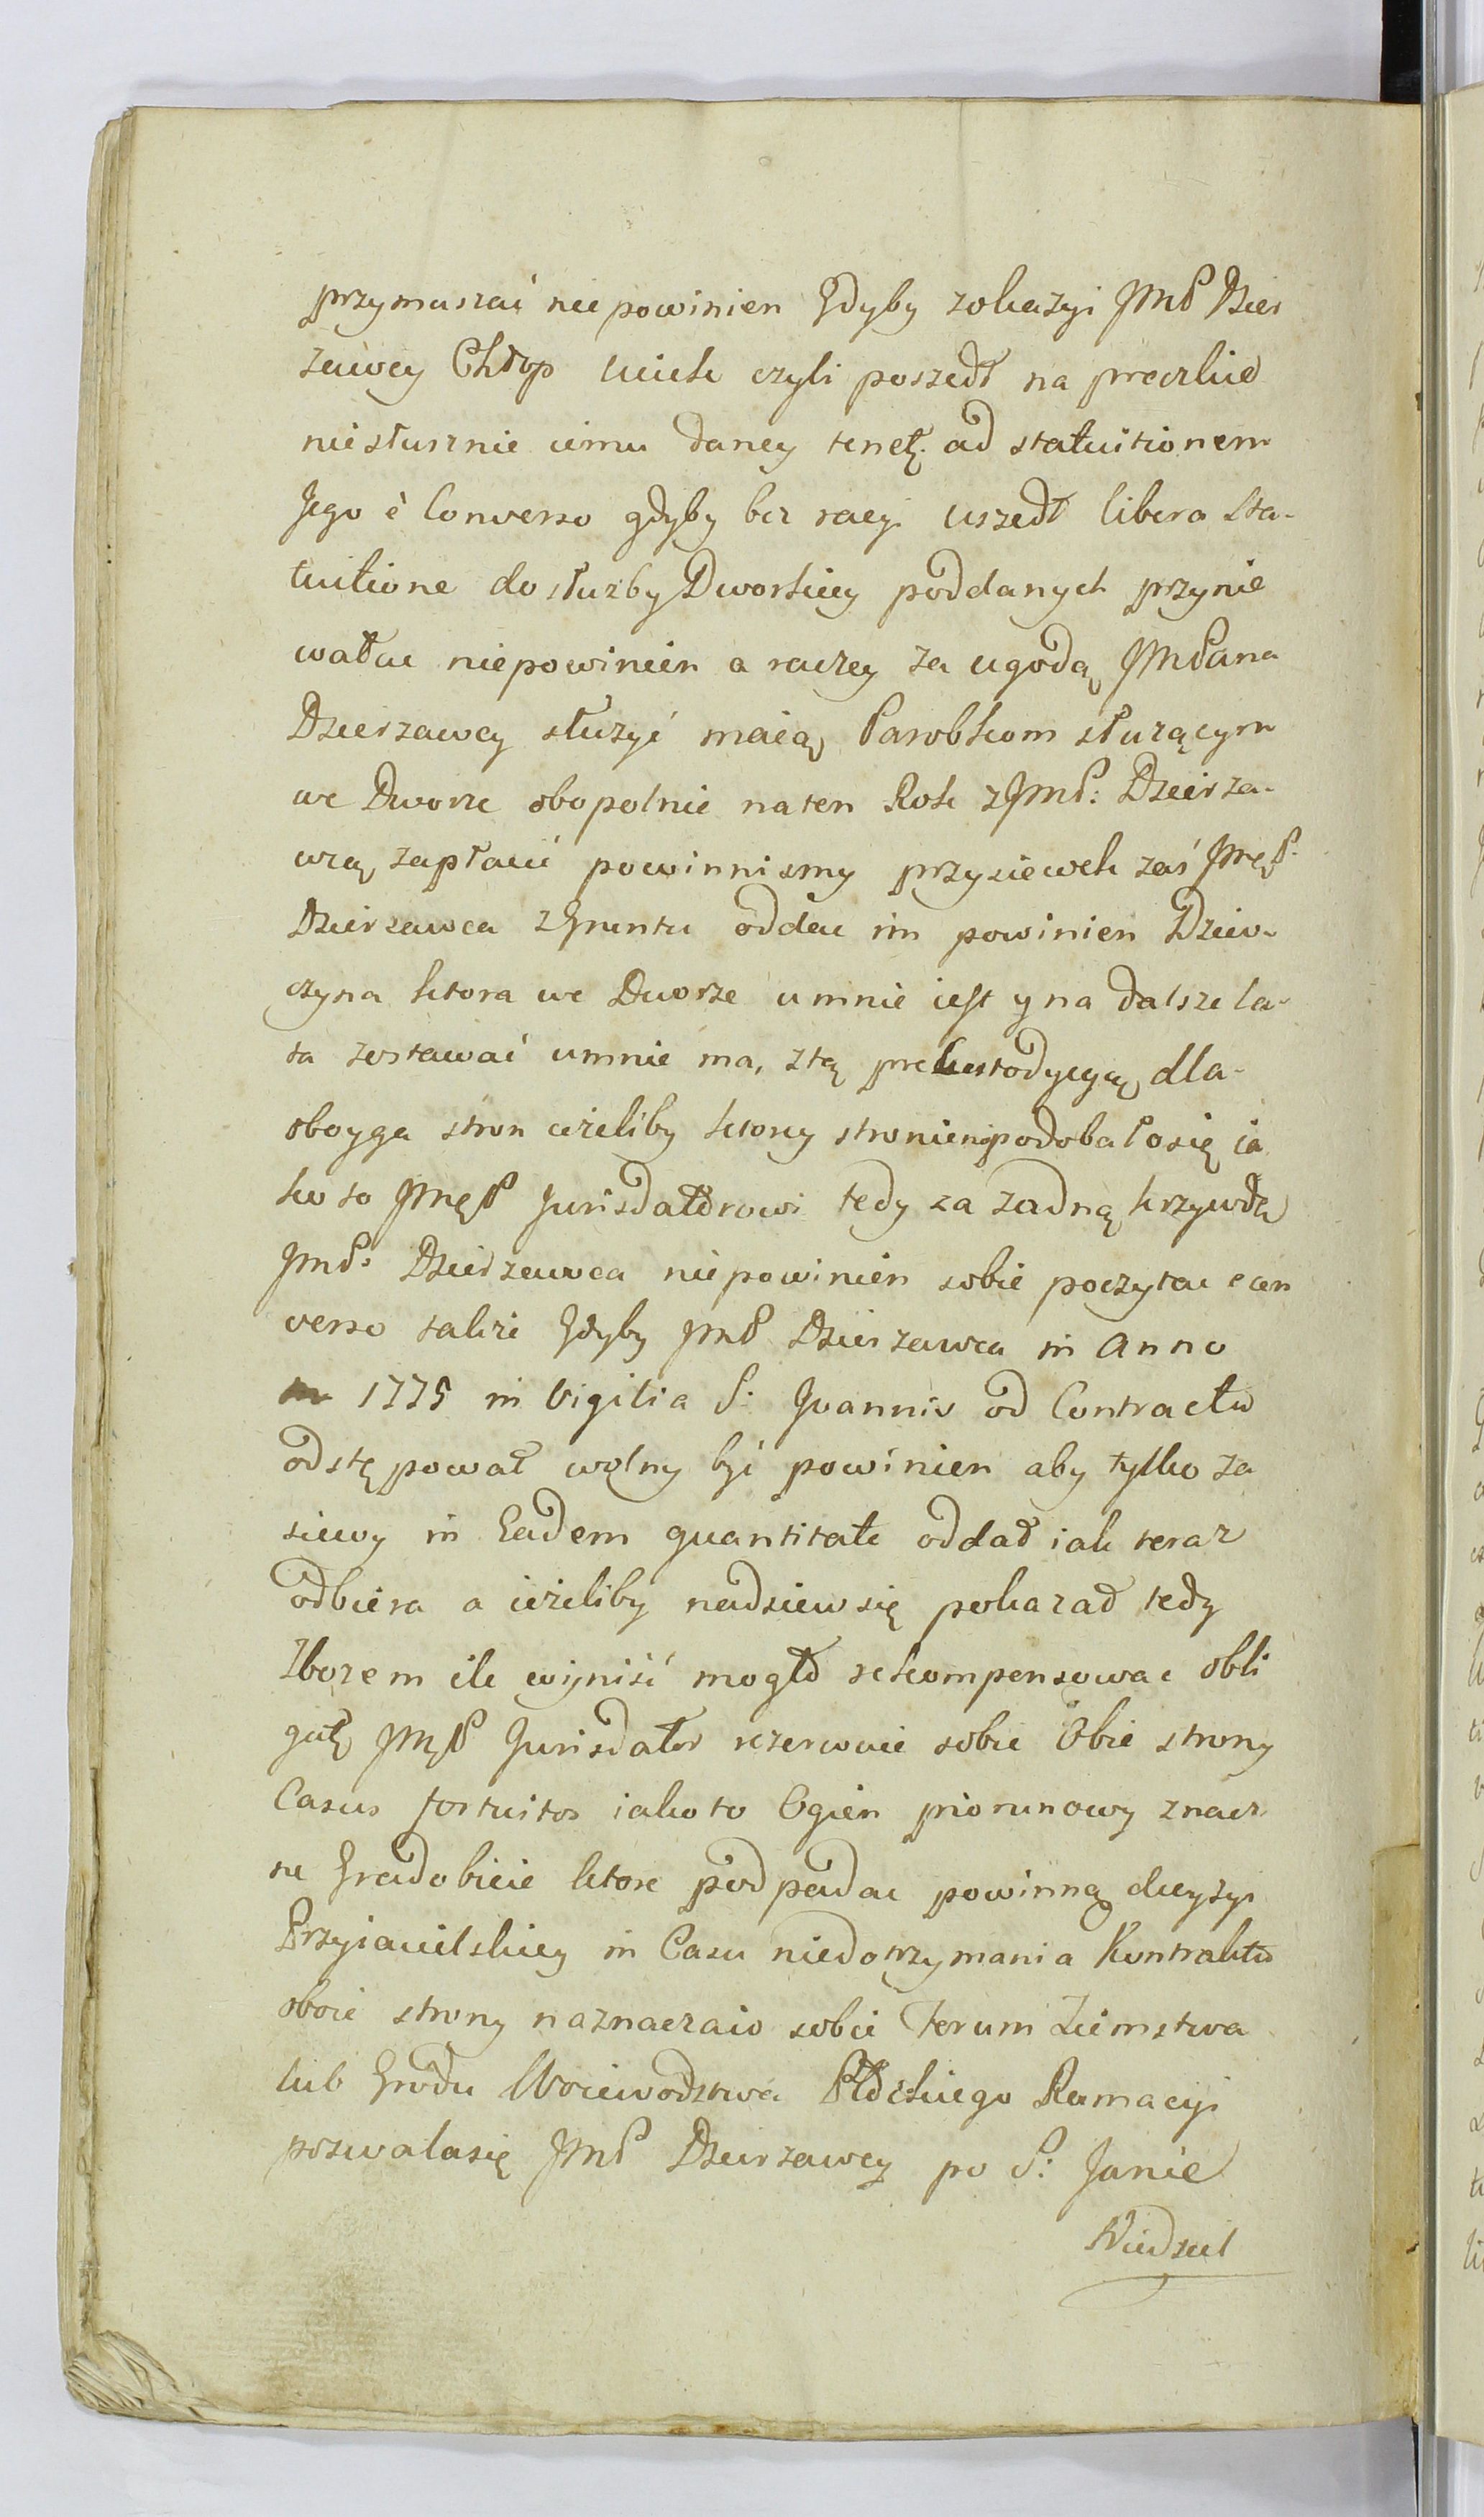 przymuszać nie powinien Gdyby zokazyi JmP Dzier
zawcy Chłop uciek czyli poszedł na przeczkie
niesłusznie iemu daney tenet. ad statuitionem
Jego è Converso gdyby bez racyi uszedł libera sta-
tuitione do służby Dworskiey poddanych przynie
walac niepowinien a raczey za ugodą JmPana
Dzierzawcy służyć maią Parobkom służącym
we Dworze obopolnie naten Rok zJmP: Dzierza-
wcą zapłacić powinnismy przysiewek zaś JmęP.
Dzierzawca zGruntu oddac im powinien Dziew-
czyna ktora we Dworze umnie iest y na dalsze la-
ta zostawać umnie ma, ztą prekustodycyą dla-
oboyga stron ieżeliby ktorey stronieniepodobałosię ia
ko to JmęP Jurisdatorowi tedy za zadną krzywdę
JmP: Dzierzawca niepowinien sobie poczytac e con
verso także Gdyby JmP Dzierzawca in Anno
1775 in Vigilia S: Joannis od Contractu
odstępował wolny być powinien aby tylko za
siewy in Eadem quantitate oddał iak teraz
odbiera a ieżeliby nadsiew się pokazał tedy
Zbozem ile wyniść mogło rekompensowac obli
guię JmęP Jurisdator rezerwuie sobie Obie strony
Casus fortuitos iakoto Ogien piorunowy znacz
ne Gradobicie ktore podpadac powinną decyzyi
Przyiacielskiey in Casu niedotrzymania Kontraktu
oboie strony naznaczaio sobie Forum Ziemstwa
lub Grodu Woiewodztwa Płockiego Rumacyi
pozwalasię JmP Dzierzawcy po S: Janie
Niedziel